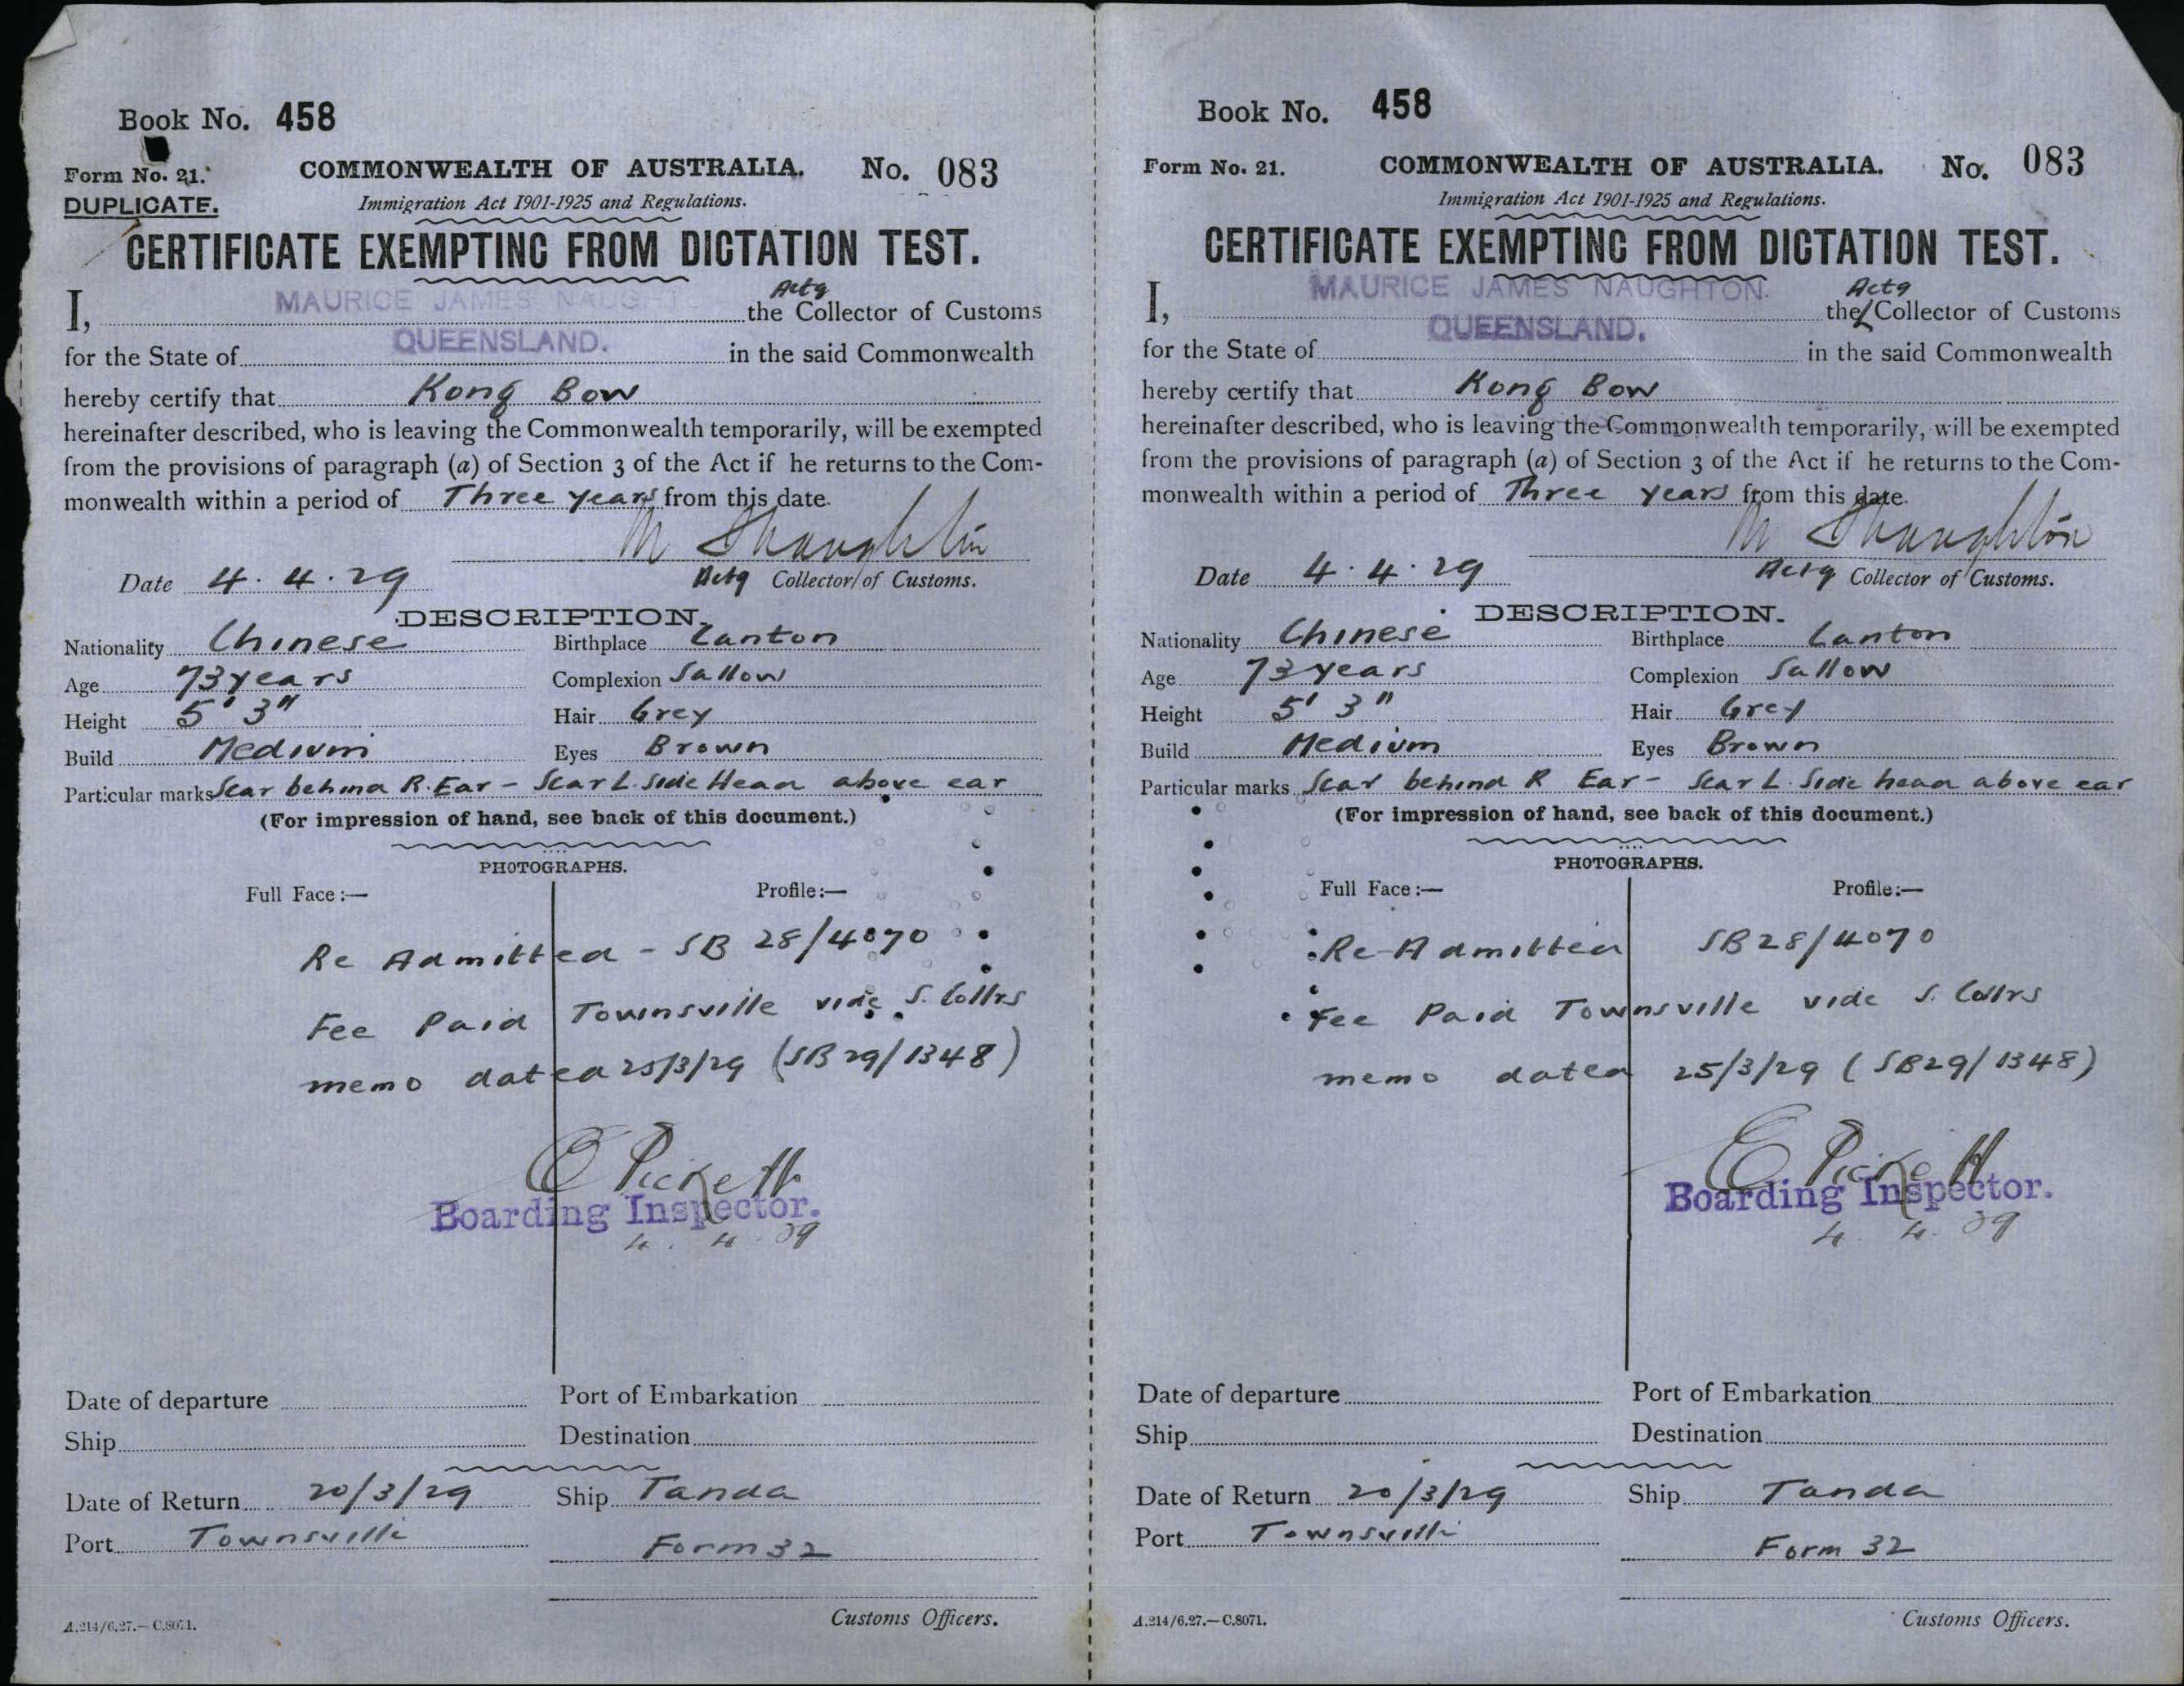 Book No. 458
Form No. 21.
DUPLICATE.
COMMONWEALTH OF AUSTRALIA. No. 083
Immigration Act 1901-1925 and Regulations.
CERTIFICATE EXEMPTING FROM DICTATION TEST.
MAURICE JAMES NAUGHT
Actg
I, the Collector of Customs
for the State of QUEENSLAND. in the said Commonwealth
hereby certify that Kong Bow
hereinafter described, who is leaving the Commonwealth temporarily, will be exempted
from the provisions of paragraph (a) of Section 3 of the Act if he returns to the Com-
monwealth within a period of Three years from this date.
Date 4.4.29 Actg Collector of Customs.
DESCRIPTION.
Nationality Chinese Birthplace Canton
Age 73 years Complexion Sallow
Height 5' 3" Hair Grey
Build Medium Eyes Brown
Particular marks Scar behind R. Ear - Scar L. side Head above ear
(For impression of hand, see back of this document.)
PHOTOGRAPHS.
Full Face:— Profile:—
Re Admitted - SB 28/4070
Fee Paid Townsville vide S. Collrs
memo dated 25/3/29 (SB 29/1348)
E Pickett
Boarding Inspector.
4.4.29
Date of departure Port of Embarkation
Ship Destination
Date of Return 20/3/29 Ship Tanda
Port Townsville Form 32
A.214/6.27.—C.8071. Customs Officers.
Book No. 458
Form No. 21. COMMONWEALTH OF AUSTRALIA. No. 083
Immigration Act 1901-1925 and Regulations.
CERTIFICATE EXEMPTING FROM DICTATION TEST.
MAURICE JAMES NAUGHTON.
Actg
I, the Collector of Customs
for the State of QUEENSLAND. in the said Commonwealth
hereby certify that Kong Bow
hereinafter described, who is leaving the Commonwealth temporarily, will be exempted
from the provisions of paragraph (a) of Section 3 of the Act if he returns to the Com-
monwealth within a period of Three years from this date.
Date 4.4.29 Actg Collector of Customs.
DESCRIPTION.
Nationality Chinese Birthplace Canton
Age 73 years Complexion Sallow
Height 5' 3" Hair Grey
Build Medium Eyes Brown
Particular marks Scar behind R Ear - Scar L. Side head above ear
(For impression of hand, see back of this document.)
PHOTOGRAPHS.
Full Face:— Profile:—
Re-Admitted SB28/4070
Fee Paid Townsville vide S. Collrs
memo dated 25/3/29 (SB29/1348)
E Pickett
Boarding Inspector.
4.4.29
Date of departure Port of Embarkation
Ship Destination
Date of Return 20/3/29 Ship Tanda
Port Townsville Form 32
A.214/6.27.—C.8071. Customs Officers.